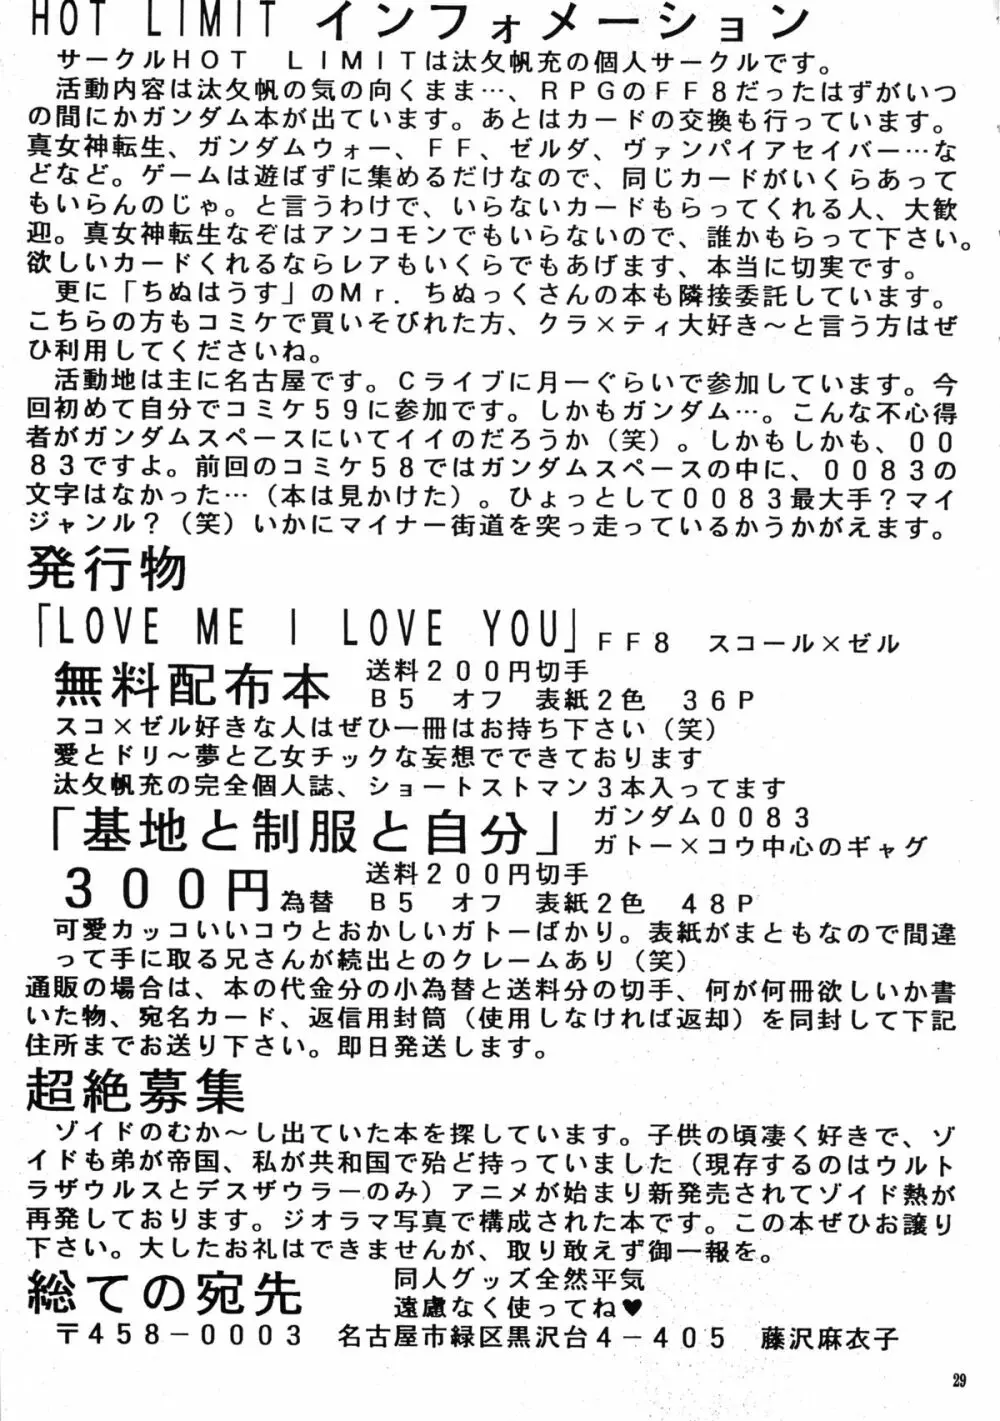 HOT LIMIT インフォメーション
サークルHOT LIMITは汰攵帆充の個人サークルです。
活動内容は汰攵帆の気の向くまま…、RPGのFF8だったはずがいつ
の間にかガンダム本が出ています。あとはカードの交換も行っています。
真女神転生、ガンダムウォー、FF、ゼルダ、ヴァンパイアセイバー…な
どなど。ゲームは遊ばずに集めるだけなので、同じカードがいくらあって
もいらんのじゃ。と言うわけで、いらないカードもらってくれる人、大歓
迎。真女神転生なぞはアンコモンでもいらないので、誰かもらって下さい。
欲しいカードくれるならレアもいくらでもあげます、本当に切実です。
更に「ちぬはうす」のMr.ちぬっくさんの本も隣接委託しています。
こちらの方もコミケで買いそびれた方、クラ×ティ大好き～と言う方はぜ
ひ利用してくださいね。
活動地は主に名古屋です。Cライブに月一ぐらいで参加しています。今
回初めて自分でコミケ59に参加です。しかもガンダム…。こんな不心得
者がガンダムスペースにいてイイのだろうか（笑）。しかもしかも、00
83ですよ。前回のコミケ58ではガンダムスペースの中に、0083の
文字はなかった…（本は見かけた）。ひょっとして0083最大手？マイ
ジャンル？（笑）いかにマイナー街道を突っ走っているかうかがえます。
発行物
「LOVE ME I LOVE YOU」FF8 スコール×ゼル
無料配布本 送料200円切手
B5 オフ 表紙2色 36P
スコ×ゼル好きな人はぜひ一冊はお持ち下さい（笑）
愛とドリ～夢と乙女チックな妄想でできております
汰攵帆充の完全個人誌、ショートストマン3本入ってます
「基地と制服と自分」 ガンダム0083
ガトー×コウ中心のギャグ
300円為替 送料200円切手
B5 オフ 表紙2色 48P
可愛カッコいいコウとおかしいガトーばかり。表紙がまともなので間違
って手に取る兄さんが続出とのクレームあり（笑）
通販の場合は、本の代金分の小為替と送料分の切手、何が何冊欲しいか書
いた物、宛名カード、返信用封筒（使用しなければ返却）を同封して下記
住所までお送り下さい。即日発送します。
超絶募集
ゾイドのむか～し出ていた本を探しています。子供の頃凄く好きで、ゾ
イドも弟が帝国、私が共和国で殆ど持っていました（現存するのはウルト
ラザウルスとデスザウラーのみ）アニメが始まり新発売されてゾイド熱が
再発しております。ジオラマ写真で構成された本です。この本ぜひお譲り
下さい。大したお礼はできませんが、取り敢えず御一報を。
総ての宛先 同人グッズ全然平気
遠慮なく使ってね♥
〒458-0003 名古屋市緑区黒沢台4-405 藤沢麻衣子
29